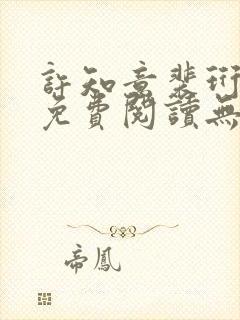 許知意裴珩
免費閱讀無
帝鳳